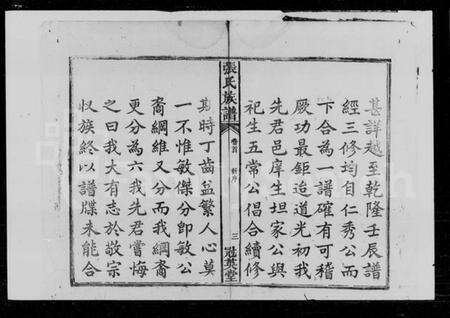 甚詳越至乾隆壬辰譜
經三修均自仁秀公而
下合為一譜確有可稽
厥功最鉅迨道光初我
先君邑庠生坦家公與
祀生五常公倡合續修
張氏族譜 卷首 新序 三 冠英堂
斯時丁齒益繁人心莫
一不惟敏傑分即敏公
裔綱維又分而我綱裔
更分為六我先君嘗悔
之曰我大有志於敬宗
收族終以譜牒未能合